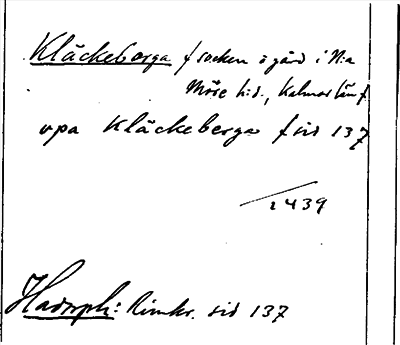 Kläckeberga f socken o gård i N:a
Möre h:d., Kalmar län f.
vpa Kläckeberga f sid 137
1439
Hadorph: Rimkr. sid 137